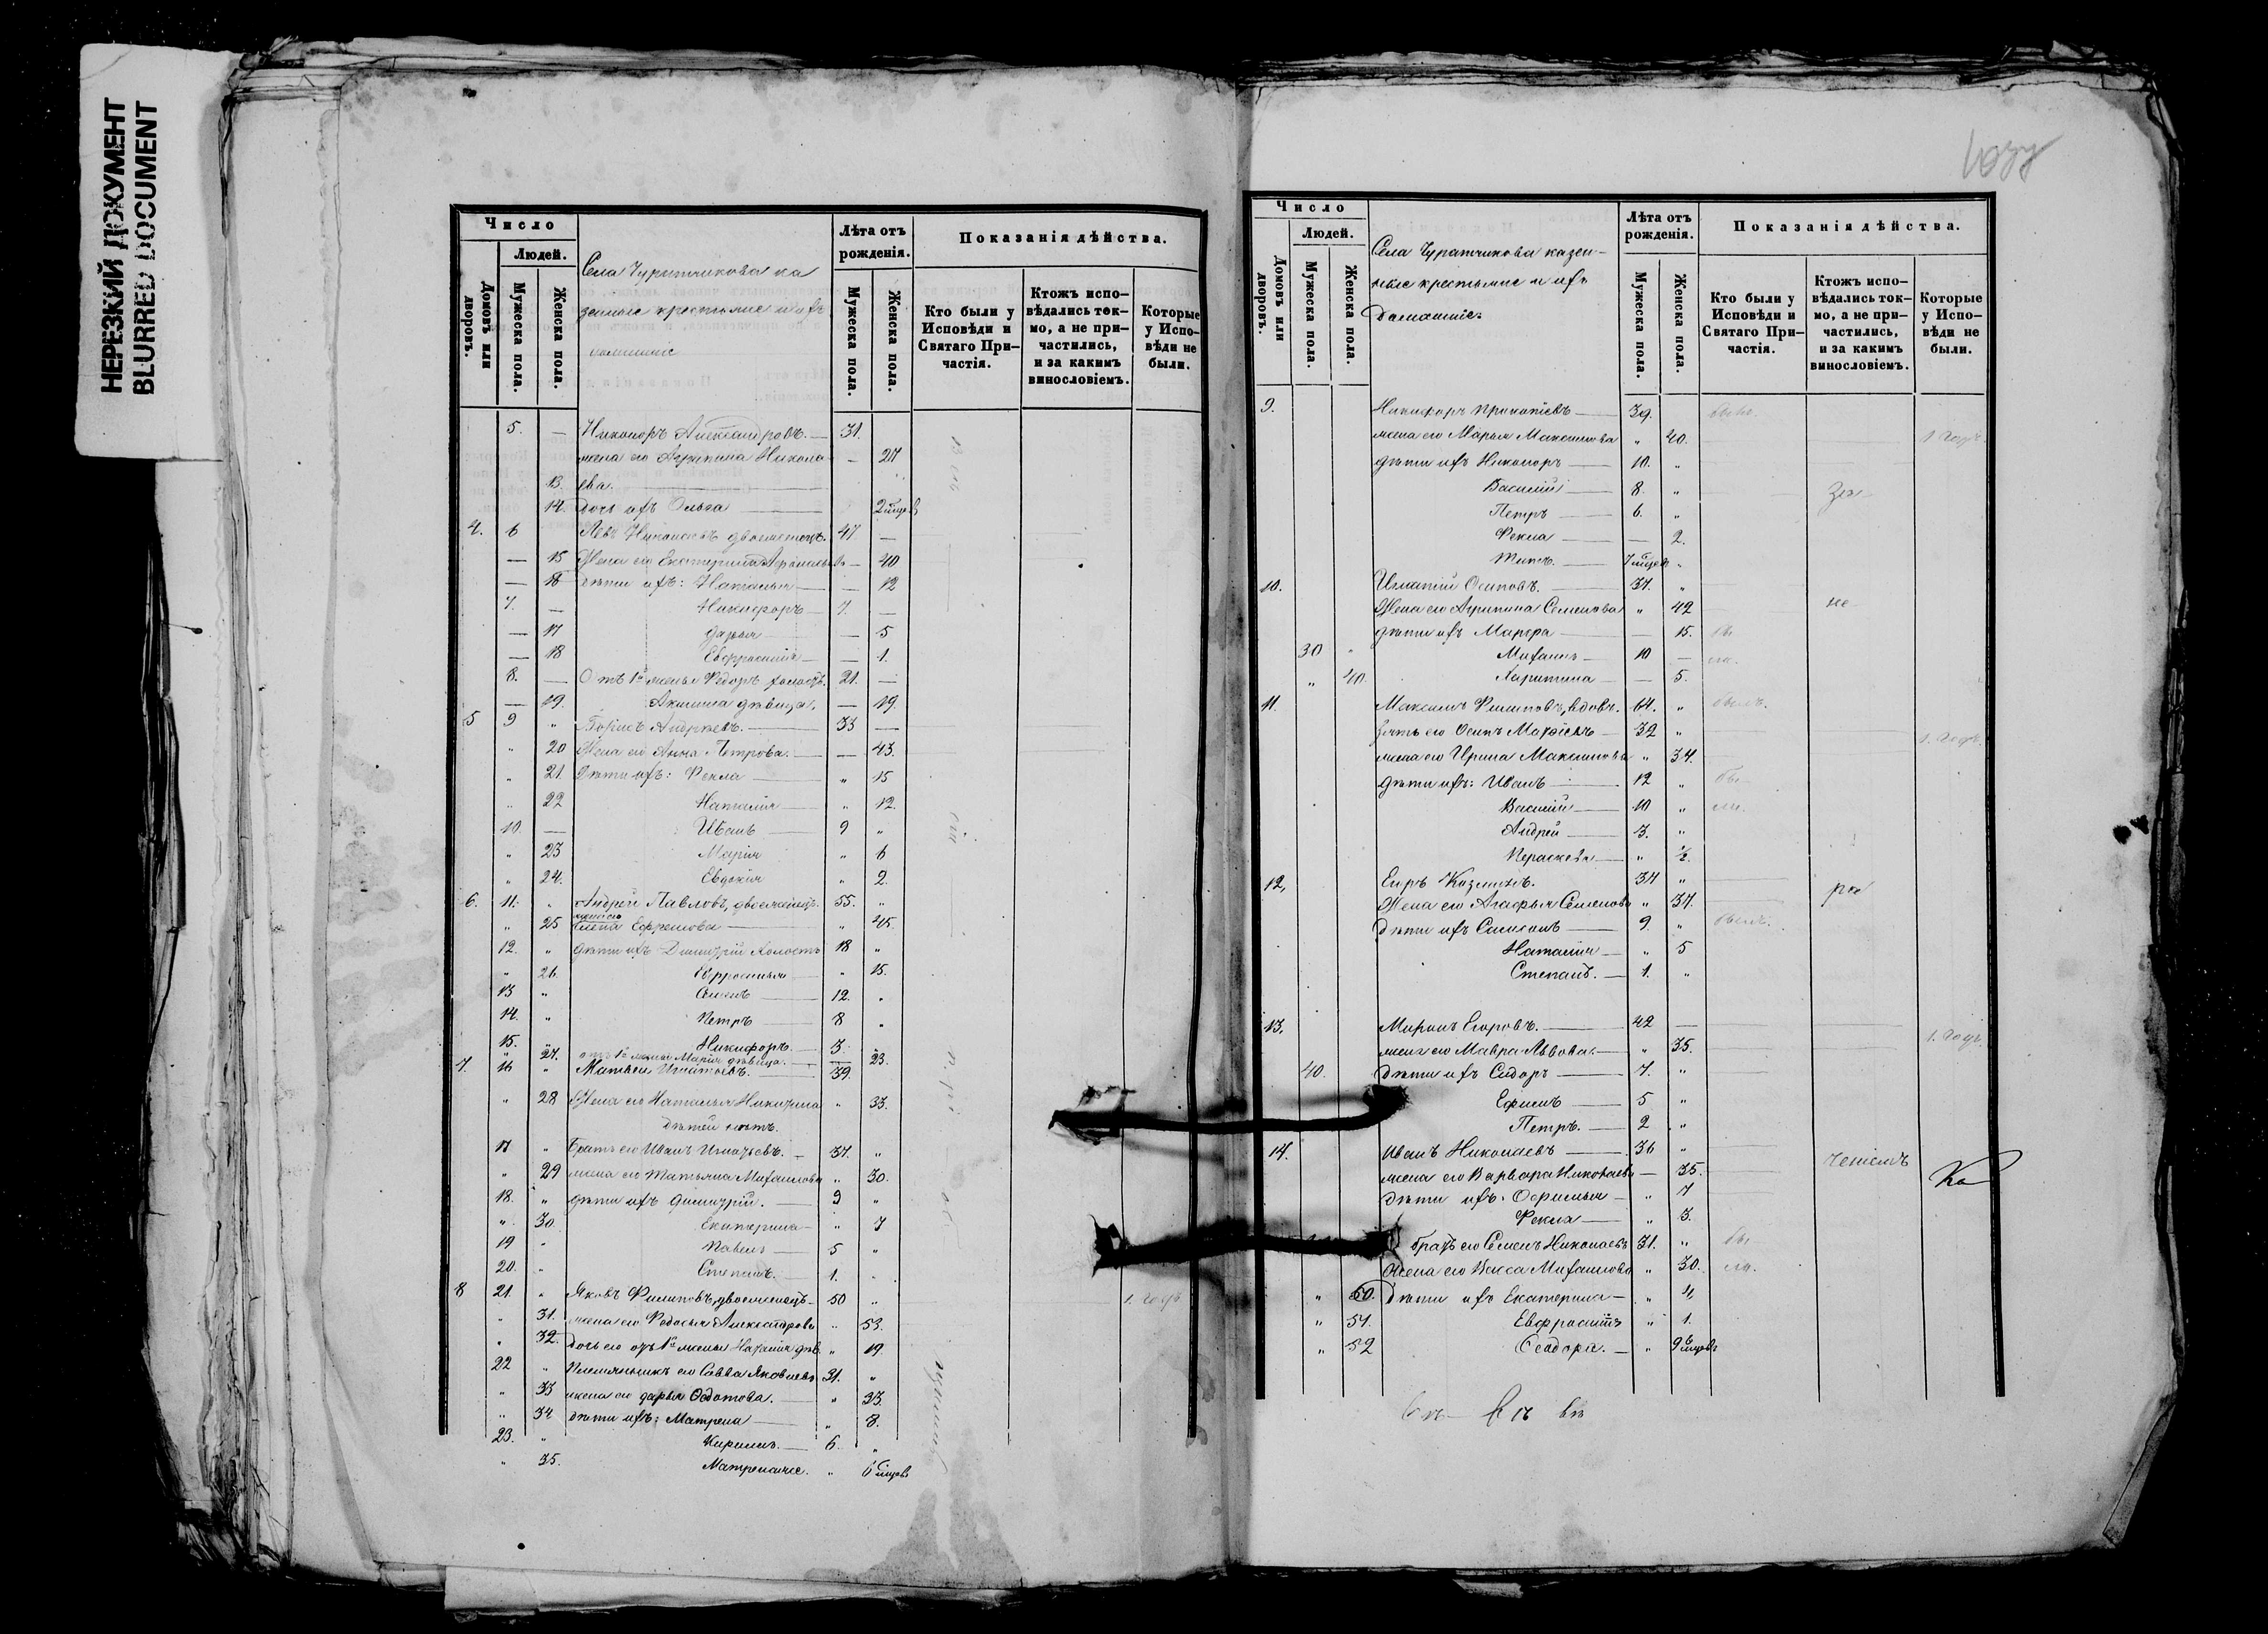 НЕРЕЗКИЙ ДОКУМЕНТ
BLURRED DOCUMENT
Число
Людей.
Домовъ или дворовъ.
Мужеска пола.
Женска пола.
Села Чуратчикова ка
зенные крестьяне и ихъ
домашніе
Лѣта отъ рожденія.
Мужеска пола.
Женска пола.
Показанія дѣйства.
Кто были у Исповѣди и Святаго При-частія.
Ктожъ испо-вѣдались ток-мо, а не при-частились, и за какимъ винословіемъ.
Которые у Испо-вѣди не были.
5. — Никаноръ Александровъ. — 31.
жена его Агрипина Никола — 27
13. ева.
14. дочь ихъ Ольга
4. 6 Левъ Николаевъ двоеженецъ. 47. —
— 15 Жена его Екатерина — 40
— 16 дѣти ихъ: Наталья — 12
7. — Никифоръ 7. —
— 17 Дарья — 5
— 18 Евфросинія — 1.
8. — Отъ 1й жены Федоръ холостъ. 21. —
— 19. Акилина дѣвица. — 19.
5 9 " Борисъ Андреевъ. 33 —
" 20 Жена его Анна Петрова. — 43.
" 21. Дѣти ихъ: Фекла " 15
" 22 Наталія " 12.
10. — Иванъ 9 "
" 23 Марія " 6
" 24. Евдокія " 2.
6. 11. " Андрей Павловъ, двоеженецъ. 55. "
жена его
" 25 Елена Ефремова " 45.
12. " дѣти ихъ Димитрій холостъ 18 "
" 26. Евфросинья " 15.
13 " Семенъ 12. "
14. " Петръ 8 "
15. " Никифоръ. 3. "
" 27. отъ 1й жены Марія дѣвица. 23.
7. 16 " Матвей Игнатьевъ. 39.
" 28 Жена его Наталья Никитина " 33.
дѣтей нѣтъ.
17 " Братъ его Иванъ Игнатьевъ. 37. "
" 29 жена его Татьяна Михаилова " 30.
18. " дѣти ихъ Димитрій. 9 "
" 30. Екатерина " 7
19 " Павелъ 5 "
20. " Степанъ. 1. "
8 21. " Яковъ Филиповъ, двоеженецъ 50 " 1. годъ
" 31. жена его Федосья Александрова " 53.
" 32. Дочь его отъ 1й жены Наталія дѣв. " 19
22 " Племянникъ его Савва Яковлевъ 31. "
" 33 жена его Дарья Федотова. " 33.
" 34 дѣти ихъ: Матрена " 8.
23. " Кирилъ. 6. "
" 35. "
Число
Людей.
Домовъ или дворовъ.
Мужеска пола.
Женска пола.
Села Чуратчикова казен-
ные крестьяне и ихъ
домашніе
Лѣта отъ рожденія.
Мужеска пола.
Женска пола.
Показанія дѣйства.
Кто были у Исповѣди и Святаго При-частія.
Ктожъ испо-вѣдались ток-мо, а не при-частились, и за какимъ винословіемъ.
Которые у Испо-вѣди не были.
9. Никифоръ Прокопіевъ 39.
жена его Марья Максимова " 40. 1 годъ
дѣти ихъ Никаноръ 10. "
Василій 8. "
Петръ 6. "
Фекла — 2.
Титъ.
10. Игнатій Осиповъ. 37. "
Жена его Агрипина Семенова " 42 не
дѣти ихъ Марфа — 15. бы
30 " Михаилъ 10 — ли.
" 40. Харитина — 5.
11. Максимъ Филиповъ, вдовъ. 64. " былъ.
зять его Осипъ 32 " 1. годъ.
жена его Ирина Максимова " 34.
дѣти ихъ: Иванъ 12 " бы
Василій 10 " ли.
Андрей 3. "
Параскева " ½.
12, Егоръ Козминъ. 34 "
Жена его Агафья Семенова " 37. ра
дѣти ихъ 9. " былъ.
Наталія " 5
Степанъ. 1. "
13. Миронъ Егоровъ. 42 —
жена его Мавра Львова. " 35. 1. годъ
40. дѣти ихъ Сидоръ 7. "
Ефимъ 5 "
Петръ. 2 "
14. Иванъ Николаевъ 36 "
жена его Варвара Николаева — 35.
дѣти ихъ: " 7
Фекла " 3.
братъ его Семенъ Николаевъ 31. " бы
Жена его Васса Михаилова " 30. ли.
" 50. дѣти ихъ Екатерина " 4
" 51. " 1.
" 52 Феодора. "